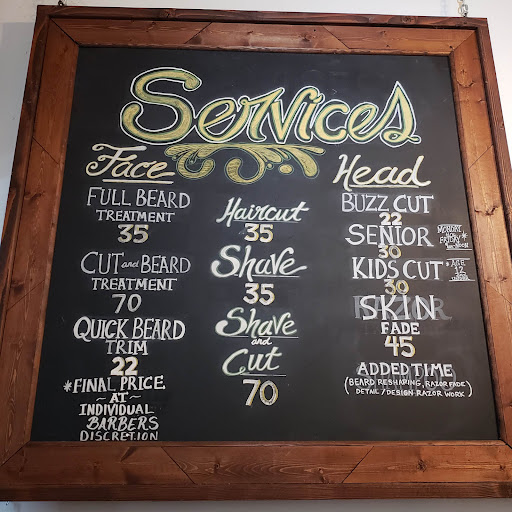 Services
Face
FULL BEARD
TREATMENT
35
CUT and BEARD
TREATMENT
70
QUICK BEARD
TRIM
22
*FINAL PRICE
~ AT ~
INDIVIDUAL
BARBERS
DISCRETION
Haircut
35
Shave
35
Shave
and
Cut
70
Head
BUZZ CUT
22
SENIOR
30
KIDS CUT
*AGE
12
30
SKIN
FADE
45
ADDED TIME
(BEARD RESHAPING, RAZOR FADE)
DETAIL / DESIGN RAZOR WORK)